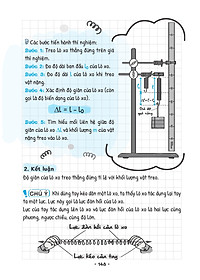 Các bước tiến hành thí nghiệm:
Bước 1: Treo lò xo thẳng đứng trên giá thí nghiệm.
Bước 2: Đo độ dài ban đầu l₀ của lò xo.
Bước 3: Đo độ dài l của lò xo khi treo vật nặng.
Bước 4: Xác định độ giãn của lò xo (còn gọi là độ biến dạng của lò xo).
Δl = l - l₀
Bước 5: Tìm hiểu mối liên hệ giữa độ giãn của lò xo Δl và khối lượng m của vật nặng treo vào lò xo.
2. Kết luận
Độ giãn của lò xo treo thẳng đứng tỉ lệ với khối lượng vật treo.
CHÚ Ý
Khi dùng tay kéo dãn một lò xo, ta thấy lò xo tác dụng lại tay ta một lực. Lực này gọi là lực đàn hồi của lò xo.
Lực của tay tác dụng lên lò xo và lực đàn hồi của lò xo là hai lực cùng phương, ngược chiều, cùng độ lớn.
Lực đàn hồi của lò xo
Lực kéo của tay